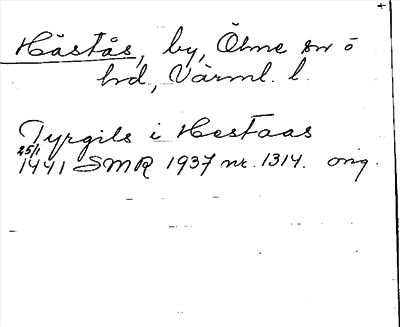 Hästås, by, Ölme sn o
hd, Värml. l.
Tyrgils i Hestaas
25/1
1441 SMR 1937 nr. 1314. orig.